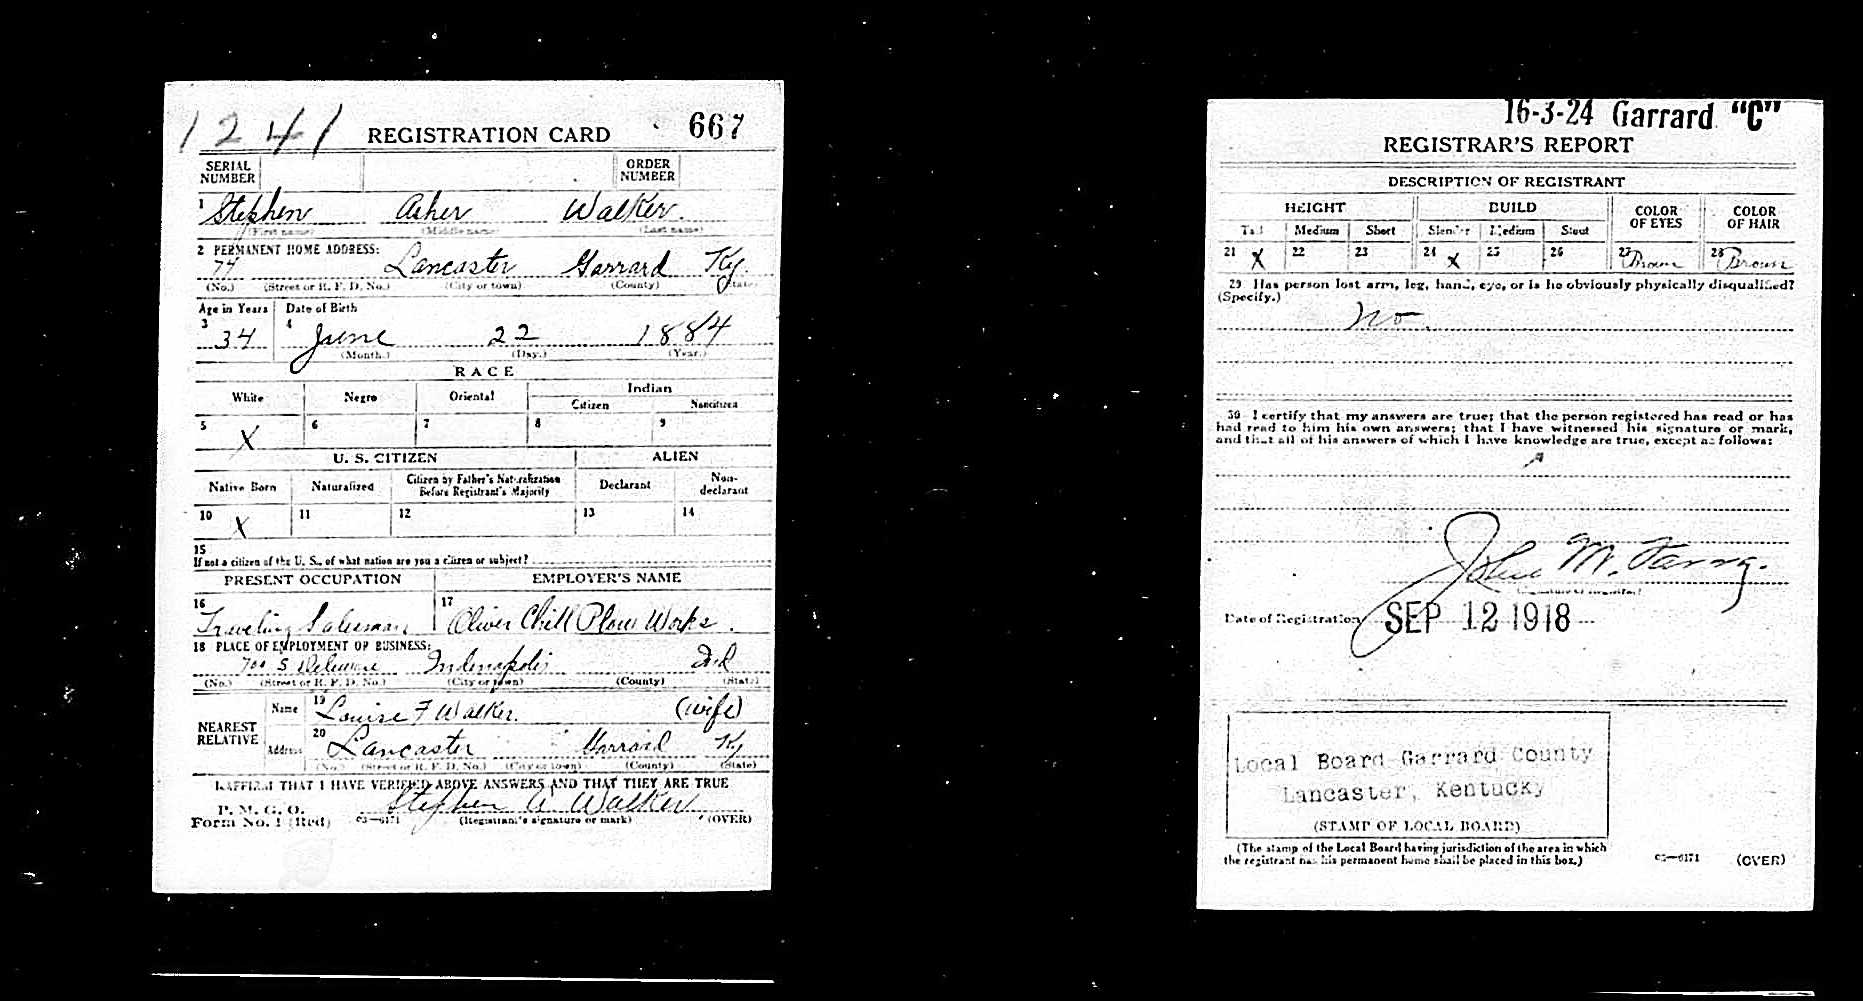 1241 REGISTRATION CARD 667
SERIAL NUMBER ORDER NUMBER
1 Stephen Asher Walker.
(First name) (Middle name) (Last name)
2 PERMANENT HOME ADDRESS:
74 Lancaster Garrard Ky.
(No.) (Street or R. F. D. No.) (City or town) (County) (State)
Age in Years Date of Birth
3 34 4 June 22 1884
(Month.) (Day.) (Year.)
RACE
White Negro Oriental Indian
Citizen Noncitizen
5 X 6 7 8 9
U. S. CITIZEN ALIEN
Native Born Naturalized Citizen by Father's Naturalization Before Registrant's Majority Declarant Non-declarant
10 X 11 12 13 14
15
If not a citizen of the U. S., of what nation are you a citizen or subject?
PRESENT OCCUPATION EMPLOYER'S NAME
16 Traveling Salesman 17 Oliver Chill Plow Works.
18 PLACE OF EMPLOYMENT OR BUSINESS:
700 S Delaware Indenapolis Ind
(No.) (Street or R. F. D. No.) (City or town) (County) (State)
NEAREST RELATIVE
Name 19 Louise F Walker. (wife)
Address 20 Lancaster Garrard Ky
(No.) (Street or R. F. D. No.) (City or town) (County) (State)
I AFFIRM THAT I HAVE VERIFIED ABOVE ANSWERS AND THAT THEY ARE TRUE
P. M. G. O.
Form No. 1 (Red) 03—6171 Stephen A Walker
(Registrant's signature or mark) (OVER)
16-3-24 Garrard "C"
REGISTRAR'S REPORT
DESCRIPTION OF REGISTRANT
HEIGHT BUILD COLOR OF EYES COLOR OF HAIR
Tall Medium Short Slender Medium Stout
21 X 22 23 24 X 25 26 27 Brown 28 Brown
29 Has person lost arm, leg, hand, eye, or is he obviously physically disqualified?
(Specify.)
No.
30 I certify that my answers are true; that the person registered has read or has
had read to him his own answers; that I have witnessed his signature or mark,
and that all of his answers of which I have knowledge are true, except as follows:
John M.
(Signature of Registrar)
Date of Registration SEP 12 1918
Local Board Garrard County
Lancaster, Kentucky
(STAMP OF LOCAL BOARD)
(The stamp of the Local Board having jurisdiction of the area in which
the registrant has his permanent home shall be placed in this box.)
03—6171 (OVER)